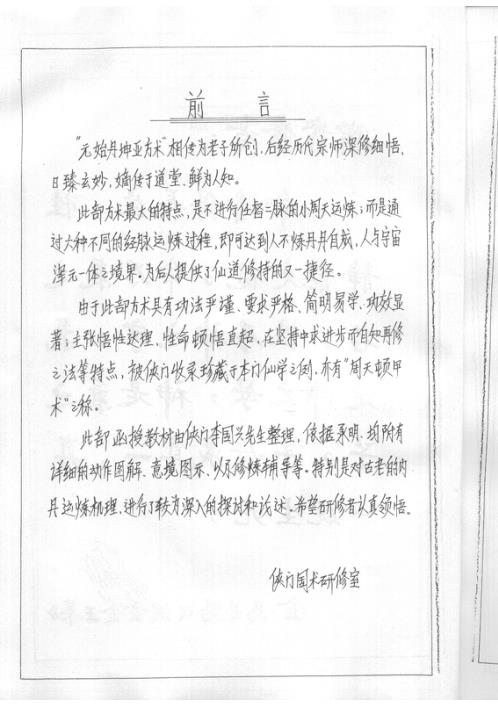 前言
"元始丹坤亚方术"相传为老子所创,后经历代宗师深修细悟、
日臻玄妙,嫡传于道堂、鲜为人知。
此部方术最大的特点,是不进行任督二脉的小周天运炼;而是通
过六种不同的经脉运炼过程,即可达到人不炼丹丹自成,人与宇宙
浑元一体之境界。为后人提供了仙道修持的又一捷径。
由于此部方术具有功法严谨、要求严格、简明易学、功效显
著;主张悟性达理,性命顿悟直超,在坚持中求进步而自知再修
之法等特点,被侠门收录珍藏于本门仙学之例,亦有"周天顿甲
术"之称。
此部函授教材由侠门李国兴先生整理,依据承明、均附有
详细的动作图解、意境图示、以及修炼辅导等。特别是对古老的内
丹边炼机理,进行了较为深入的探讨和论述。希望研修者认真领悟。
侠门国术研修室